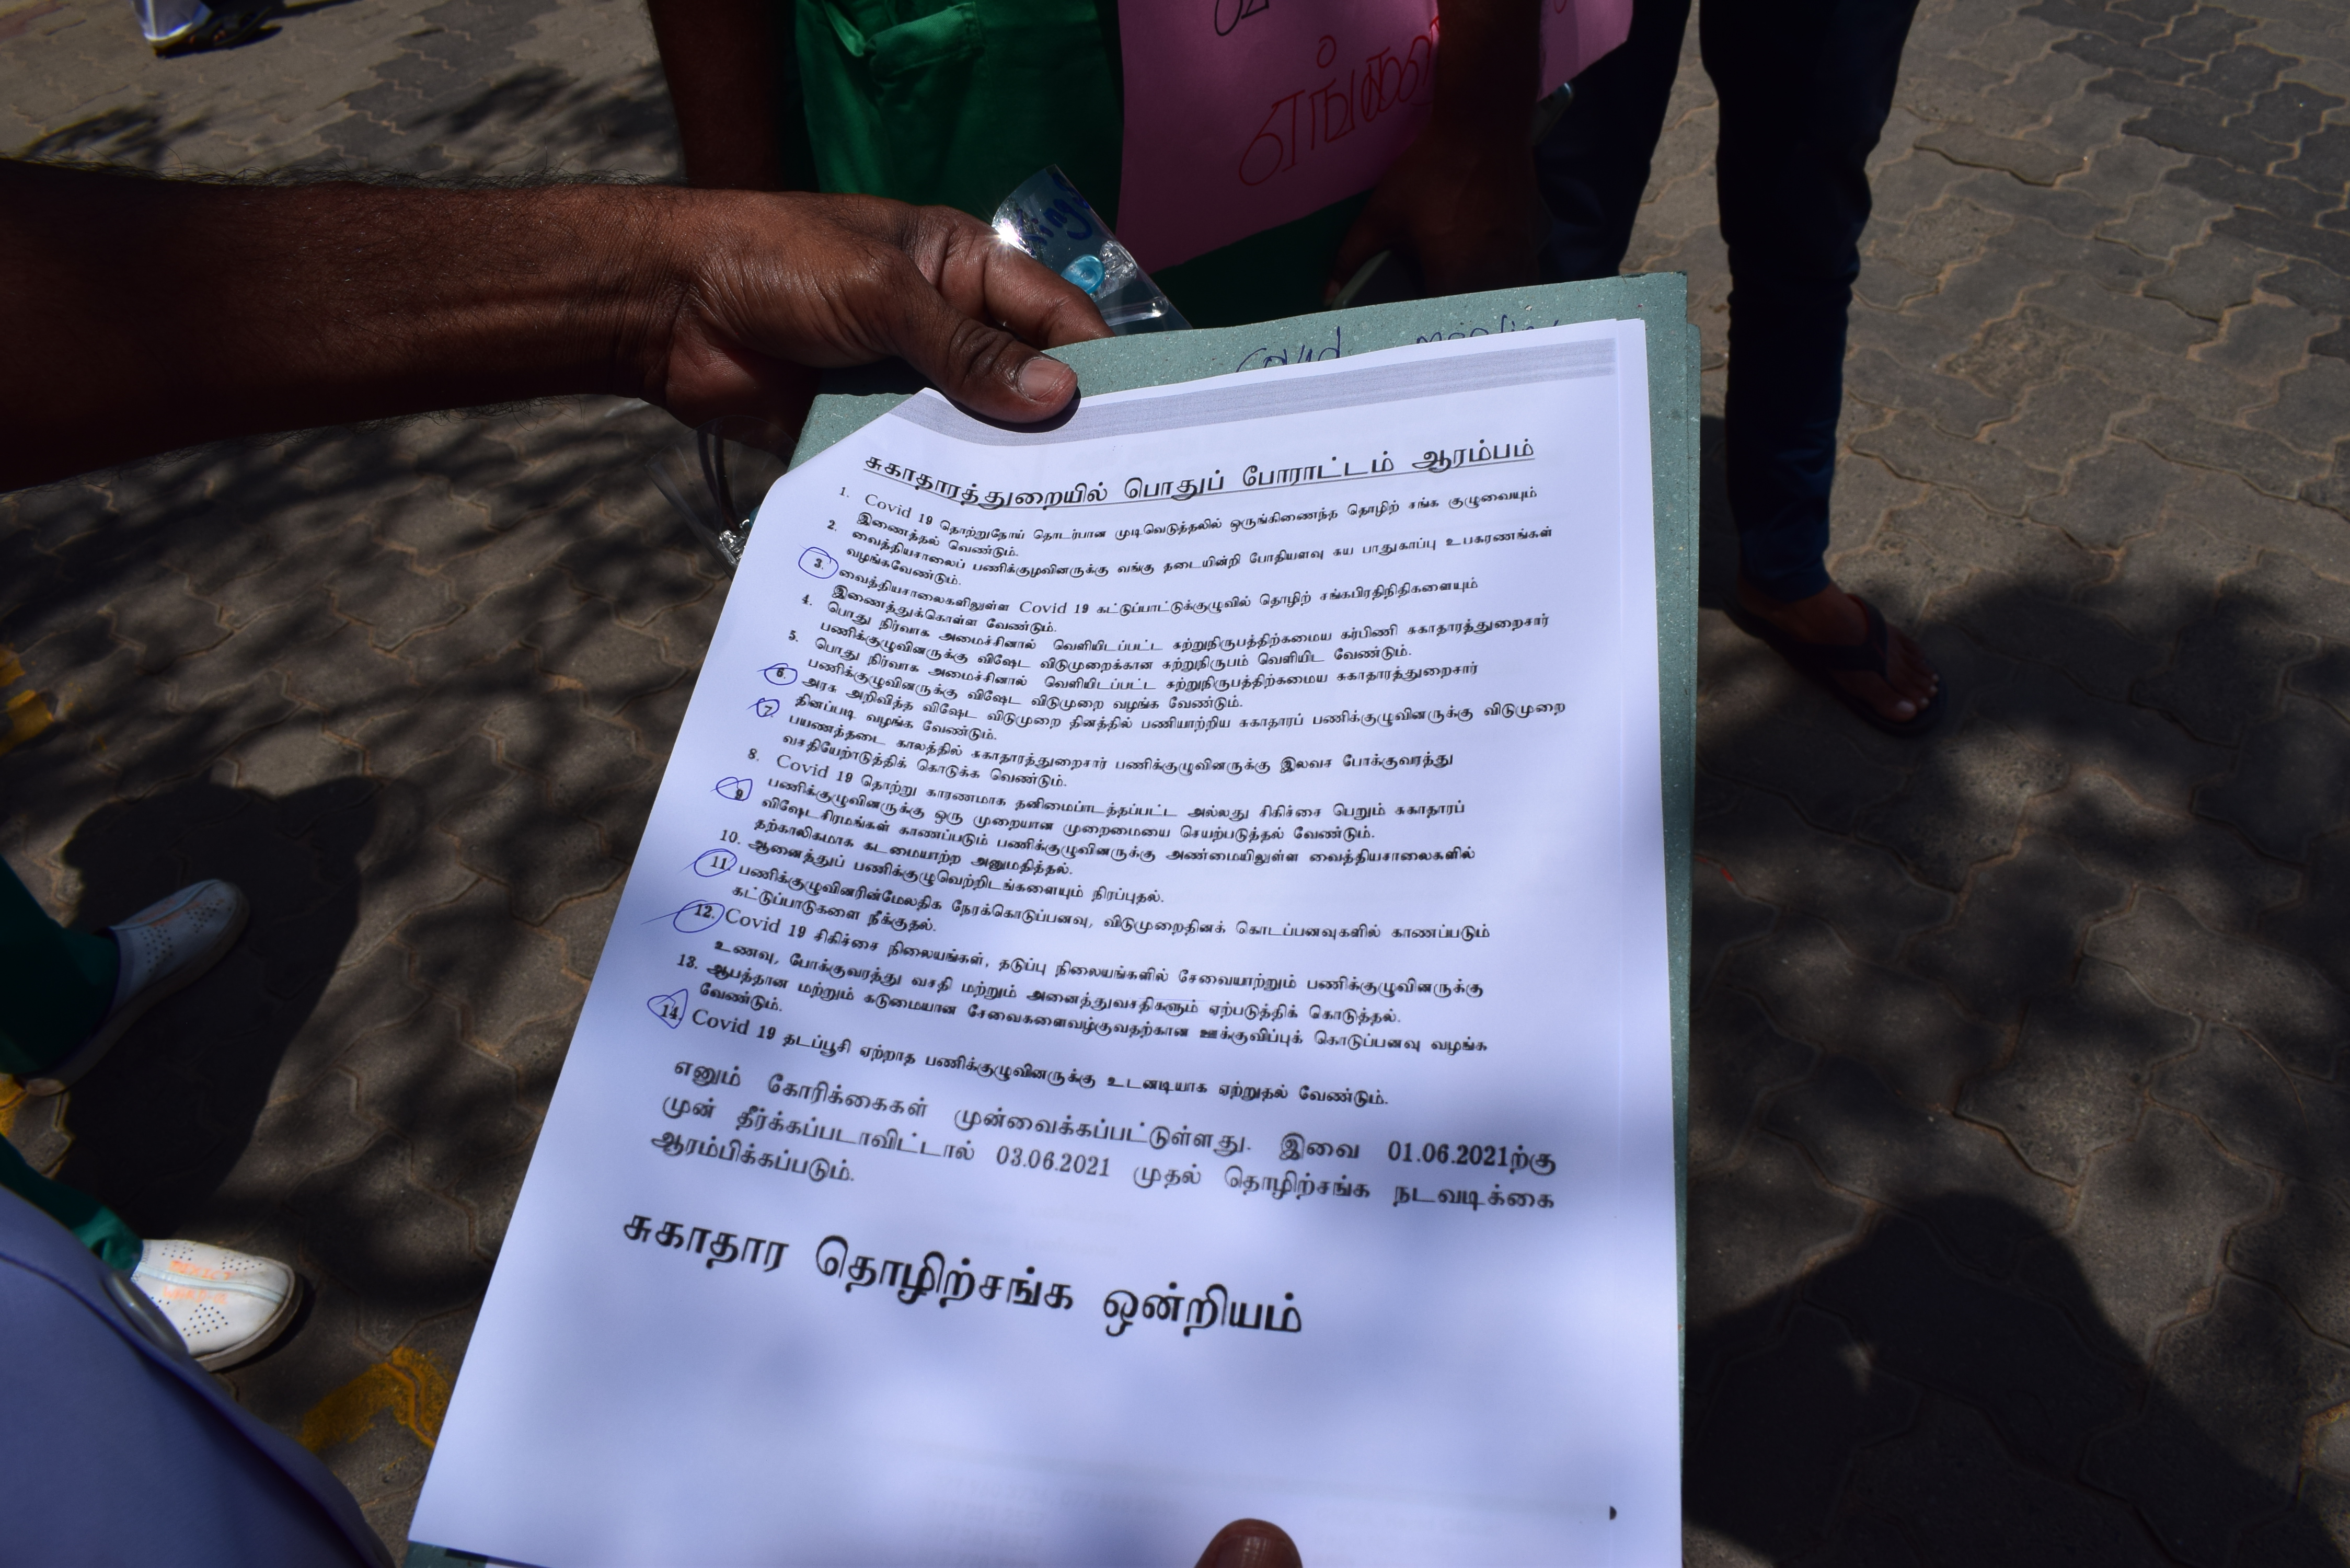 எங்களை
Covid
சுகாதாரத்துறையில் பொதுப் போராட்டம் ஆரம்பம்
1. Covid 19 தொற்றுநோய் தொடர்பான முடிவெடுத்தலில் ஒருங்கிணைந்த தொழிற் சங்க குழுவையும்
இணைத்தல் வேண்டும்.
2. வைத்தியசாலைப் பணிக்குழவினருக்கு வங்கு தடையின்றி போதியளவு சுய பாதுகாப்பு உபகரணங்கள்
வழங்கவேண்டும்.
3. வைத்தியசாலைகளிலுள்ள Covid 19 கட்டுப்பாட்டுக்குழுவில் தொழிற் சங்கபிரதிநிதிகளையும்
இணைத்துக்கொள்ள வேண்டும்.
4. பொது நிர்வாக அமைச்சினால் வெளியிடப்பட்ட சுற்றுநிருபத்திற்கமைய கர்பிணி சுகாதாரத்துறைசார்
பணிக்குழுவினருக்கு விஷேட விடுமுறைக்கான சுற்றுநிருபம் வெளியிட வேண்டும்.
5. பொது நிர்வாக அமைச்சினால் வெளியிடப்பட்ட சுற்றுநிருபத்திற்கமைய சுகாதாரத்துறைசார்
பணிக்குழுவினருக்கு விஷேட விடுமுறை வழங்க வேண்டும்.
6. அரசு அறிவித்த விஷேட விடுமுறை தினத்தில் பணியாற்றிய சுகாதாரப் பணிக்குழுவினருக்கு விடுமுறை
தினப்படி வழங்க வேண்டும்.
7. பயணத்தடை காலத்தில் சுகாதாரத்துறைசார் பணிக்குழுவினருக்கு இலவச போக்குவரத்து
வசதியேற்ாடுத்திக் கொடுக்க வேண்டும்.
8. Covid 19 தொற்று காரணமாக தனிமைப்டத்தப்பட்ட அல்லது சிகிச்சை பெறும் சுகாதாரப்
பணிக்குழுவினருக்கு ஒரு முறையான முறைமையை செயற்படுத்தல் வேண்டும்.
9. விஷேடசிரமங்கள் காணப்படும் பணிக்குழுவினருக்கு அண்மையிலுள்ள வைத்தியசாலைகளில்
தற்காலிகமாக கடமையாற்ற அனுமதித்தல்.
10. ஆனைத்துப் பணிக்குழுவெற்றிடங்களையும் நிரப்புதல்.
11. பணிக்குழுவினரின்மேலதிக நேரக்கொடுப்பனவு, விடுமுறைதினக் கொடப்பனவுகளில் காணப்படும்
கட்டுப்பாடுகளை நீக்குதல்.
12. Covid 19 சிகிச்சை நிலையங்கள், தடுப்பு நிலையங்களில் சேவையாற்றும் பணிக்குழுவினருக்கு
உணவு, போக்குவரத்து வசதி மற்றும் அனைத்துவசதிகளும் ஏற்படுத்திக் கொடுத்தல்.
13. ஆபத்தான மற்றும் கடுமையான சேவைகளைவழ்குவதற்கான ஊக்குவிப்புக் கொடுப்பனவு வழங்க
வேண்டும்.
14. Covid 19 தடப்பூசி ஏற்றாத பணிக்குழுவினருக்கு உடனடியாக ஏற்றுதல் வேண்டும்.
எனும் கோரிக்கைகள் முன்வைக்கப்பட்டுள்ளது. இவை 01.06.2021ற்கு
முன் தீர்க்கப்படாவிட்டால் 03.06.2021 முதல் தொழிற்சங்க நடவடிக்கை
ஆரம்பிக்கப்படும்.
சுகாதார தொழிற்சங்க ஒன்றியம்